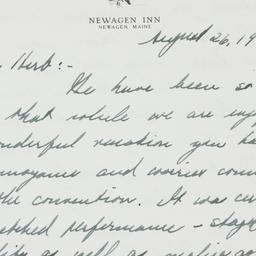 NEWAGEN INN
NEWAGEN, MAINE
August 26, 19
Herb:-
We have been so
that while we are enj
onderful vacation you ha
nnoyance and worries conn
the convention. It was cer
performance - stage
as well as